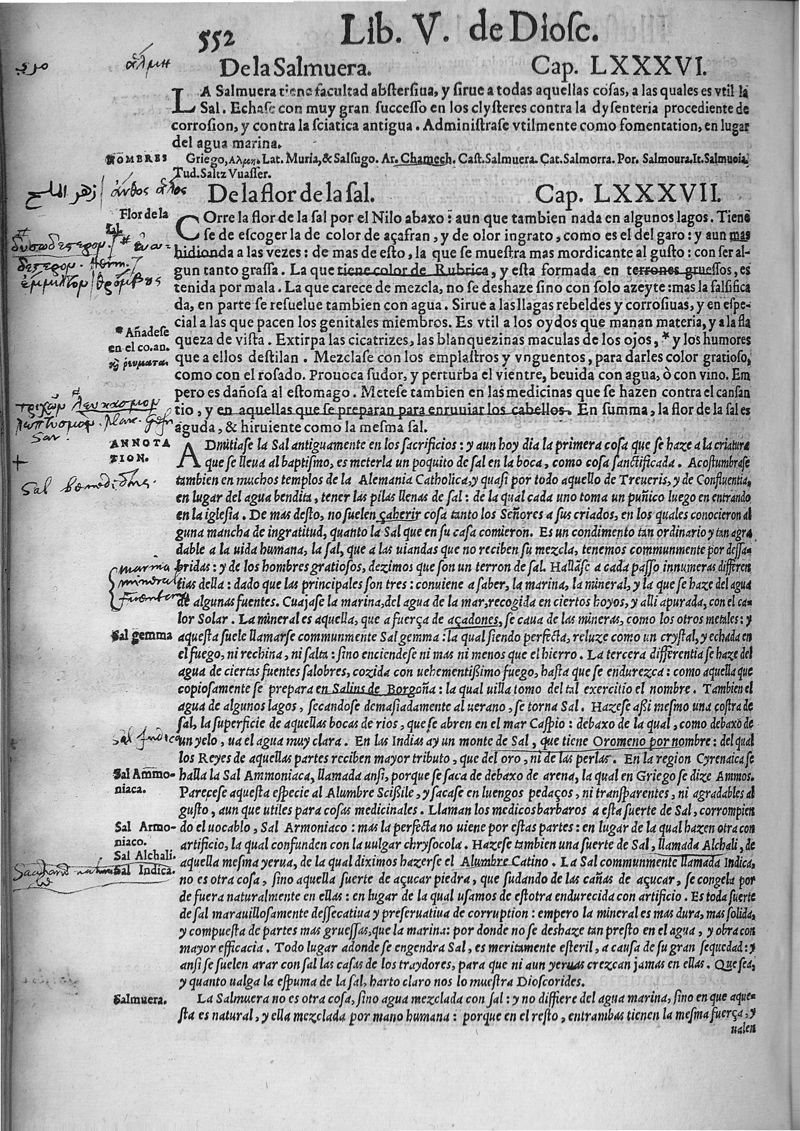 552 Lib. V. de Diosc.
De la Salmuera. Cap. LXXXVI.
LA Salmuera tiene facultad abstersiua, y sirue a todas aquellas cosas, a las quales es vtil la
Sal. Echase con muy gran successo en los clysteres contra la dysenteria procediente de
corrosion, y contra la sciatica antigua. Administrase vtilmente como fomentation, en lugar
del agua marina.
NOMBRES Griego, Αλμη. Lat. Muria, & Salsugo. Ar. Chamech. Cast. Salmuera. Cat. Salmorra. Por. Salmoura. It. Salmuoia.
Tud. Saltz Vuasser.
زهر الملح ἄνθος ἁλός
De la flor de la sal. Cap. LXXXVII.
Flor de la
COrre la flor de la sal por el Nilo abaxo: aun que tambien nada en algunos lagos. Tiene
se de escoger la de color de açafran, y de olor ingrato, como es el del garo: y aun mas
hidionda a las vezes: de mas de esto, la que se muestra mas mordicante al gusto: con ser al-
gun tanto grassa. La que tiene color de Rubrica, y esta formada en terrones gruessos, es
tenida por mala. La que carece de mezcla, no se deshaze sino con solo azeyte: mas la falsifica
da, en parte se resuelue tambien con agua. Sirue a las llagas rebeldes y corrosiuas, y en espe-
cial a las que pacen los genitales miembros. Es vtil a los oydos que manan materia, y a la fla
* Añadese
en el co. an.
queza de vista. Extirpa las cicatrizes, las blanquezinas maculas de los ojos, * y los humores
que a ellos destilan. Mezclase con los emplastros y vnguentos, para darles color gratioso,
como con el rosado. Prouoca sudor, y perturba el vientre, beuida con agua, ò con vino. Em
pero es dañosa al estomago. Metese tambien en las medicinas que se hazen contra el cansan
tio, y en aquellas que se preparan para enruuiar los cabellos. En summa, la flor de la sal es
aguda, & hiruiente como la mesma sal.
ANNOTA
TION.
ADmitiase la Sal antiguamente en los sacrificios: y aun hoy dia la primera cosa que se haze a la criatura
que se lleua al baptismo, es meterla un poquito de sal en la boca, como cosa sanctificada. Acostumbrase
tambien en muchos templos de la Alemania Catholica, y quasi por todo aquello de Treueris, y de Confluentia,
en lugar del agua bendita, tener las pilas llenas de sal: de la qual cada uno toma un puñico luego en entrando
en la iglesia. De mas desto, no suelen çaherir cosa tanto los Señores a sus criados, en los quales conocieron al
guna mancha de ingratitud, quanto la Sal que en su casa comieron. Es un condimento tan ordinario y tan agra
dable a la uida humana, la sal, que a las uiandas que no reciben su mezcla, tenemos communmente por dessa-
bridas: y de los hombres gratiosos, dezimos que son un terron de sal. Hallase a cada passo innumeras differen
tias della: dado que las principales son tres: conuiene a saber, la marina, la mineral, y la que se haze del agua
de algunas fuentes. Cuajase la marina, del agua de la mar, recogida en ciertos hoyos, y alli apurada, con el ca-
lor Solar. La mineral es aquella, que a fuerça de açadones, se caua de las mineras, como los otros metales: y
Sal gemma
aquesta suele llamarse communmente Sal gemma: la qual siendo perfecta, reluze como un crystal, y echada en
el fuego, ni rechina, ni salta: sino enciendese ni mas ni menos que el hierro. La tercera differentia se haze del
agua de ciertas fuentes salobres, cozida con uehementissimo fuego, hasta que se endurezca: como aquella que
copiosamente se prepara en Salins de Borgoña: la qual uilla tomo del tal exercitio el nombre. Tambien el
agua de algunos lagos, secandose demasiadamente al uerano, se torna Sal. Hazese assi mesmo una costra de
sal, la superficie de aquellas bocas de rios, que se abren en el mar Caspio: debaxo de la qual, como debaxo de
Sal Indica
un yelo, ua el agua muy clara. En las Indias ay un monte de Sal, que tiene Oromeno por nombre: del qual
los Reyes de aquellas partes reciben mayor tributo, que del oro, ni de las perlas. En la region Cyrenaica se
Sal Ammo-
niaca.
halla la Sal Ammoniaca, llamada ansi, porque se saca de debaxo de arena, la qual en Griego se dize Ammos.
Parecese aquesta especie al Alumbre Scissile, y sacase en luengos pedaços, ni transparentes, ni agradables al
gusto, aun que utiles para cosas medicinales. Llaman los medicos barbaros a esta suerte de Sal, corrompien
Sal Armo-
niaco.
do el uocablo, Sal Armoniaco: mas la perfecta no uiene por estas partes: en lugar de la qual hazen otra con
artificio, la qual confunden con la uulgar chrysocola. Hazese tambien una suerte de Sal, llamada Alchali, de
Sal Alchali.
Sal Indica.
aquella mesma yerua, de la qual diximos hazerse el Alumbre Catino. La Sal communmente llamada Indica,
no es otra cosa, sino aquella suerte de açucar piedra, que sudando de las cañas de açucar, se congela por
de fuera naturalmente en ellas: en lugar de la qual usamos de estotra endurecida con artificio. Es toda suerte
de sal marauillosamente dessecatiua y preseruatiua de corruption: empero la mineral es mas dura, mas solida,
y compuesta de partes mas gruessas, que la marina: por donde no se deshaze tan presto en el agua, y obra con
mayor efficacia. Todo lugar adonde se engendra Sal, es meritamente esteril, a causa de su gran sequedad: y
ansi se suelen arar con sal las casas de los traydores, para que ni aun yeruas crezcan jamas en ellas. Que sea,
y quanto ualga la espuma de la sal, harto claro nos lo muestra Dioscorides.
Salmuera.
La Salmuera no es otra cosa, sino agua mezclada con sal: y no differe del agua marina, sino en que aque-
sta es natural, y ella mezclada por mano humana: porque en el resto, entrambas tienen la mesma fuerça, y
ualen